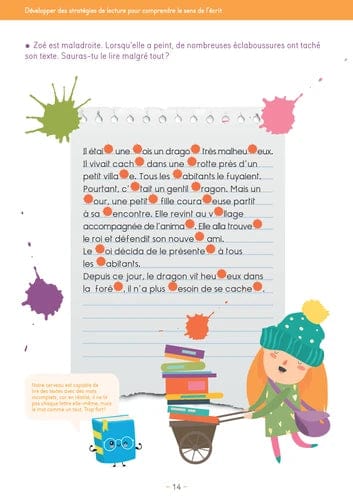 Développer des stratégies de lecture pour comprendre le sens de l'écrit
● Zoé est maladroite. Lorsqu'elle a peint, de nombreuses éclaboussures ont taché
son texte. Sauras-tu le lire malgré tout ?
Il étai● une ●ois un drago● très malheu●eux.
Il vivait cach● dans une ●rotte près d'un
petit villa●e. Tous les ●abitants le fuyaient.
Pourtant, c'●tait un gentil ●ragon. Mais un
●our, une petit● fille coura●euse partit
à sa ●encontre. Elle revint au v●llage
accompagnée de l'anima●. Elle alla trouve●
le roi et défendit son nouve● ami.
Le ●oi décida de le présente● à tous
les ●abitants.
Depuis ce jour, le dragon vit heu●eux dans
la forê●, il n'a plus ●esoin de se cache●.
Notre cerveau est capable de
lire des textes avec des mots
incomplets, car en réalité, il ne lit
pas chaque lettre elle-même, mais
le mot comme un tout. Trop fort !
– 14 –